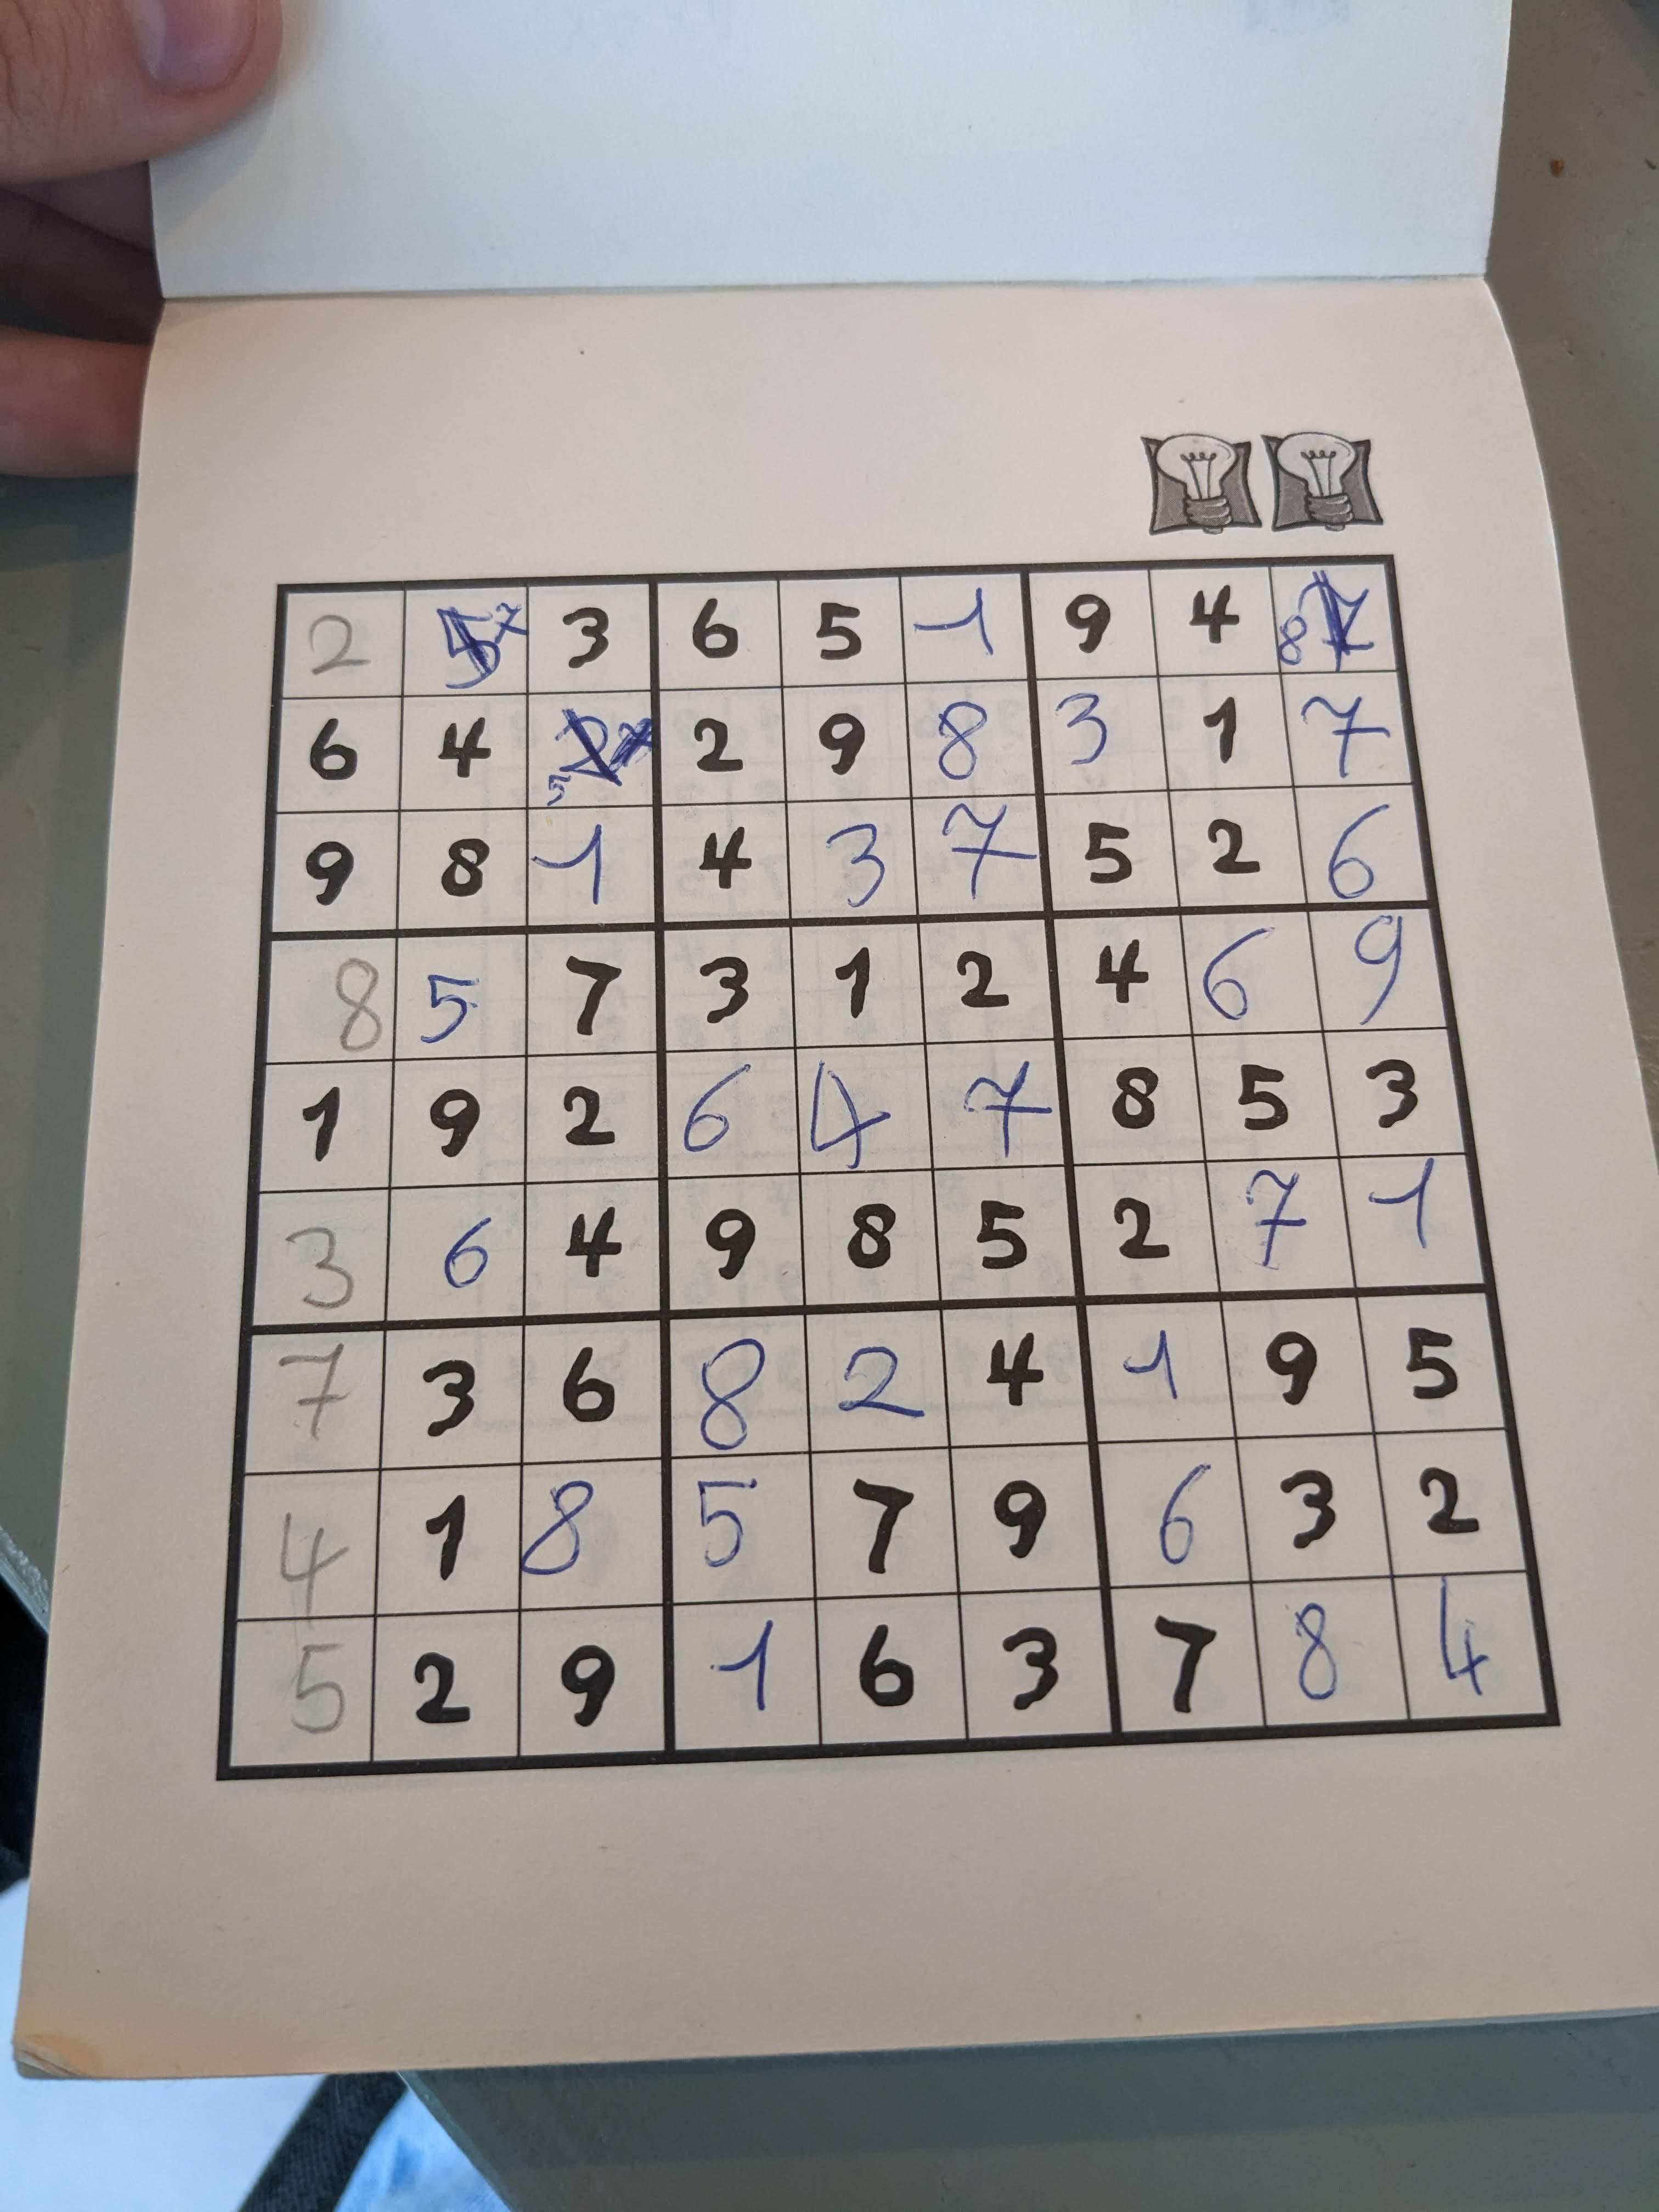 2 7 3 6 5 1 9 4 8
6 4 5 2 9 8 3 1 7
9 8 1 4 3 7 5 2 6
8 5 7 3 1 2 4 6 9
1 9 2 6 4 7 8 5 3
3 6 4 9 8 5 2 7 1
7 3 6 8 2 4 1 9 5
4 1 8 5 7 9 6 3 2
5 2 9 1 6 3 7 8 4